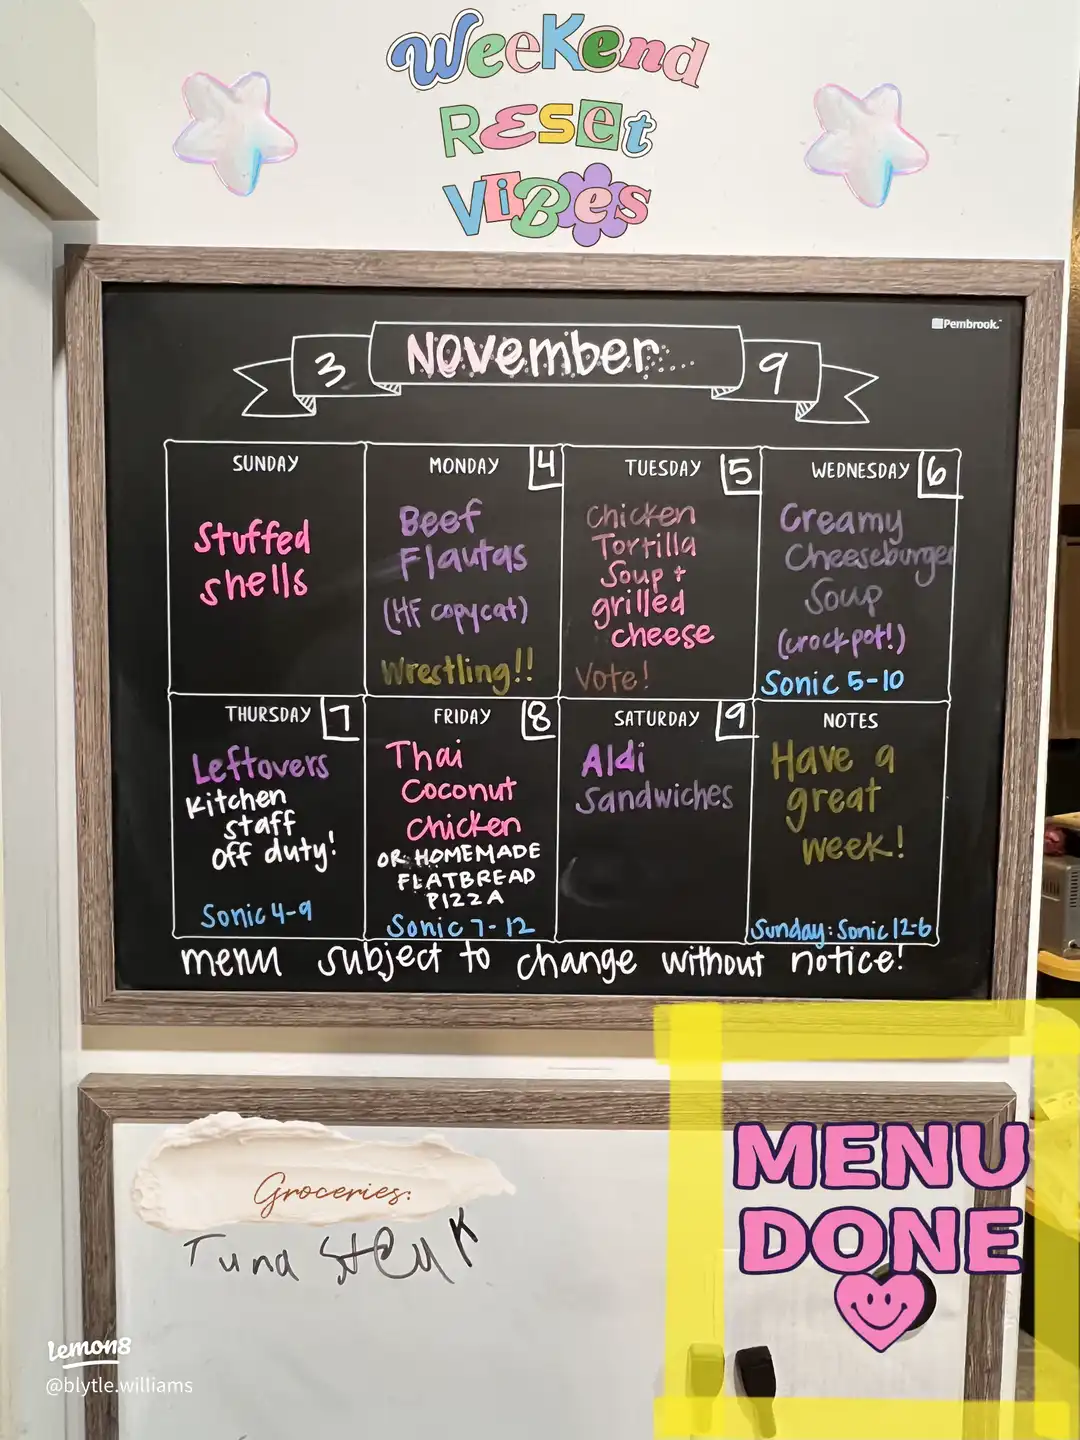 WeeKend
RESet
ViBes
Pembrook.
3 November 9
SUNDAY
Stuffed
shells
MONDAY 4
Beef
Flautas
(HF copycat)
Wrestling!!
TUESDAY 5
Chicken
Tortilla
Soup +
grilled
cheese
Vote!
WEDNESDAY 6
Creamy
Cheeseburger
Soup
(crockpot!)
Sonic 5-10
THURSDAY 7
Leftovers
Kitchen
staff
off duty!
Sonic 4-9
FRIDAY 8
Thai
Coconut
Chicken
OR HOMEMADE
FLATBREAD
PIZZA
Sonic 7-12
SATURDAY 9
Aldi
Sandwiches
NOTES
Have a
great
week!
Sunday: Sonic 12-6
menu subject to change without notice!
Groceries:
Tuna Steak
MENU
DONE
lemon8
@blytle.williams